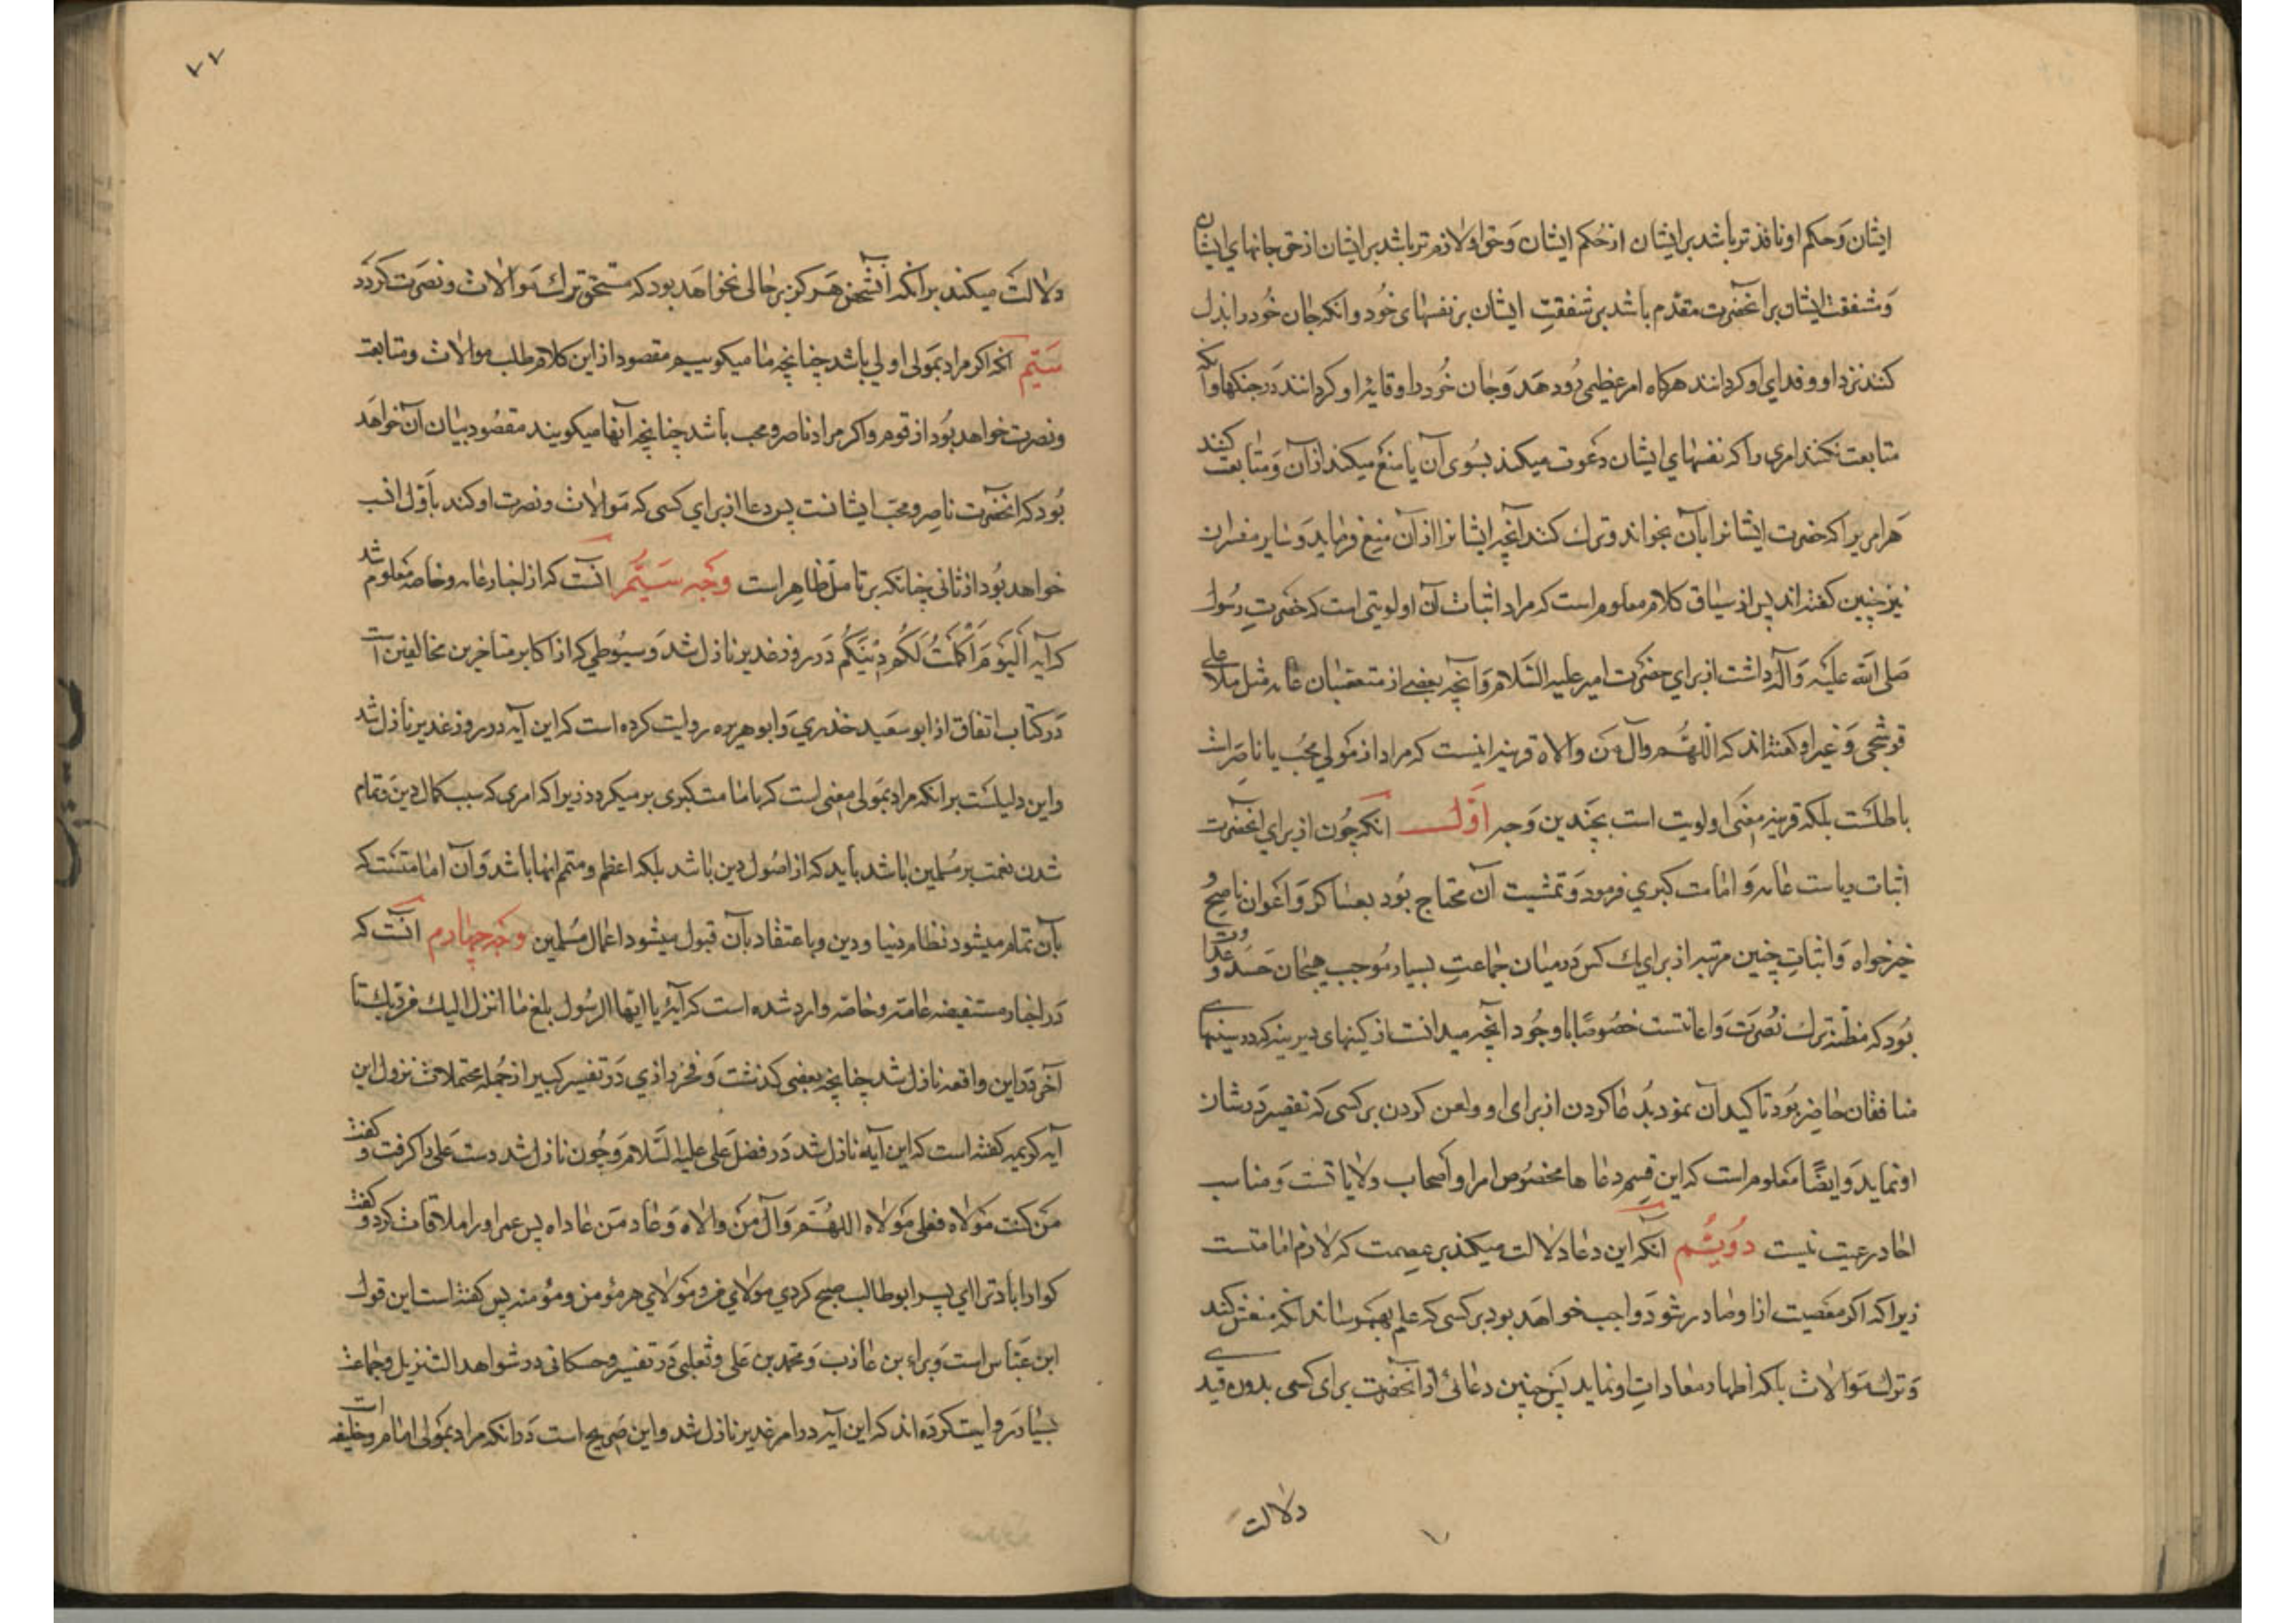 ایشان وَحکم او نافذ تر باشد بر ایشان از حُکم ایشان وَحق او لازم تر باشد بر ایشان از حق جانهای ایشان
وَشفقت ایشان بر آنحضرت مقدّم باشد بر شفقتِ ایشان بر نفسهای خُود و آنکه جان خُود را بذل
کنند نزد او و فدای او کردانند هرکاه امر عظیمی رُو دهَد وَجان خُود را وقایهٔ او کردانند دَر جنکها و آنکه
متابعت نکنند امری را که نفسهای ایشان دعَوت میکند بسُوی آن یا منع میکند از آن وَمتابعت کنند
هَر امریرا که حضرت ایشانرا بآن بخواند و ترك کنند آنچه ایشانرا از آن منع فرماید وَسایر مفسّران
نیز چنین کفته اند پس از سیاق کلام معلوم است که مراد اثبات آن اولویتی است که حضرتِ رسُول
صَلی الله علَیه وَآله داشت از برای حضرَت امیر علیه السّلام وَآنچه بعضی از متعصّبان عامه مثل ملا علی
قوشچی وَغیر او کفته اند که اللهُمّ وال مَن والاه قرینه اینست که مراد از مَولی محُب یا ناصِر است
باطلست بلکه قرینه معنَی اولویت است بچَندین وَجه اَوّل آنکه چُون از برای آنحضرت
اثبات ریاست عامه وَامامت کبری فرمود وَتمشیت آن محتاج بُود بعساکر وَاَعوان ناصح و
خیرخواه وَاثباتِ چنین مرتبه از برای یك کس دَر میان جماعتِ بسیار مُوجب هیجان حَسَد و عداوت
بُود که مظنّه ترك نُصرَت وَاعانتست خصُوصًا با وجُود آنچه میدانست از کینهای دیرینه که در سینهای
منافقان حاضر بُود تاکید آن نمود بدُعا کردن از برای او و لعن کردن بر کسی که تقصیر دَر شان
او نماید وَایضًا مَعلوم است که این قِسم دعاها مخصُوص امرا و اَصحاب ولایاتست وَمناسب
احاد رعیت نیست دوُیُّم آنکه این دعا دَلالت میکند بر عِصمت که لازم امامتست
زیراکه اکر مَعصیت از او صادر شود وَاجب خواهَد بود بر کسی که علم بهم رساند آنکه منعش کند
وَترك مَوالات بلکه اظهار معاداتِ او نماید پَس چنین دعائی از آنحضرت برای کسی بدون قید
دلالت
۷۷
دلالت میکند بر آنکه آنشخص هَرکز بر حالی نخواهَد بود که مستحق ترك مَوالات و نصرَت کردد
سَیّم آنکه اکر مراد بمَولی اولی باشد چنانچه ما میکوییم مقصود از این کلام طلب موالات و متابعت
و نصرت خواهد بُود از قوم و اکر مراد ناصر و محب باشد چنانچه آنها میکویند مقصُود بیان آن خواهَد
بُود که آنحضَرت ناصِر و محبّ ایشانست پس دعا از برای کسی که مَوالات و نصرت او کند باَوّل انسب
خواهد بُود از ثانی چنانکه بر تامّل ظاهِر است وَجه سَیُّم آنست که از اخبار عامه و خاصه مَعلوم شد
که آیه اَلیَومَ اَکمَلتُ لَکُم دِینَکُم دَر روز غدیر نازل شد وَسیُوطی که از اکابر متأخرین مخالفین است
دَر کتاب اتفاق از ابو سعَید خدری وَابو هریره روایت کرده است که این آیه در روز غدیر نازل شد
و این دلیلست بر آنکه مراد بمَولی معنی است که باِمامت کبری بر میکردد زیراکه امری که سبب کمال دین وَتمام
شدن نعمت بر مُسلمین باشد باید که از اصُول دین باشد بلکه اعظم و متمم آنها باشد وَآن امامتست که
بآن تمام میشود نظام دنیا و دین و باعتقاد بآن قبول میشود اعمال مُسلمین وَجه چهارم آنست که
دَر اخبار مستفیضه عامّه و خاصّه وارد شده است که آیهٔ یا ایّها الرسُول بلغ ما انزل الیك من ربّك تا
آخر دَر این واقعه نازل شد چنانچه بعضی کذشت وَفخر رازی دَر تفسیر کبیر از جُمله محتملات نزول این
آیه کریمه کفته است که این آیه نازل شد دَر فضل عَلی علیه السَّلام وَچُون نازل شد دست عَلی را کرفت و کفت
مَن کنت مَولاه فعلی مَولاه اللهُمَّ وَال مَن والاه وَعاد مَن عاداه پس عمر او را ملاقات کرد و کفت
کوارا باد ترا ای پسر ابوطالب صبح کردی مولای من و مَولای هر مؤمن و مؤمنه پس کفته است این قول
ابن عبّاس است وَبراء بن عازب وَمحمّد بن عَلی و ثعلبی دَر تفسیر و حسکانی در شواهد التنزیل و جماعت
بسیار رَوایت کرده اند که این آیه در امر غدیر نازل شد و این صَریح است دَر آنکه مراد بمَولی امام و خلیفه است